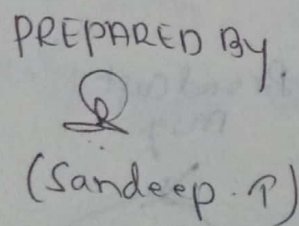 PREPARED By.
(Sandeep. T)